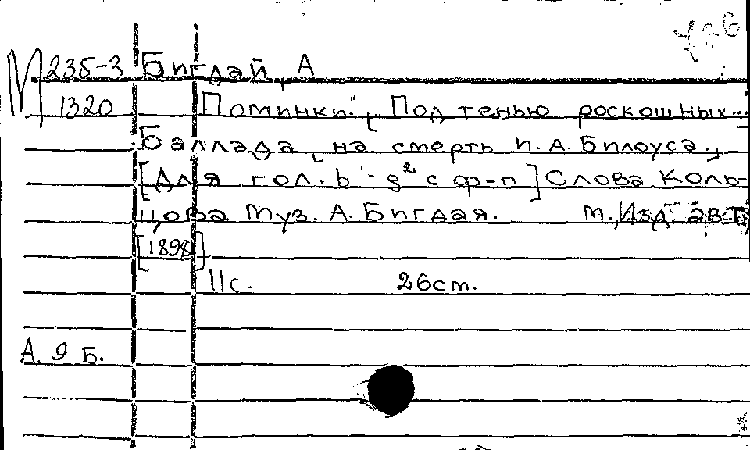 М 235-3 Бигдай, А
1320 Поминки. [Под тенью роскошных...
Баллада, на смерть П. А. Билоуса.,
[Для гол. b - g² с ф-п] Слова Коль-
цова Муз. А. Бигдая. М., Изд. авт.
[1898]
11с. 26ст.
А. 9 Б.